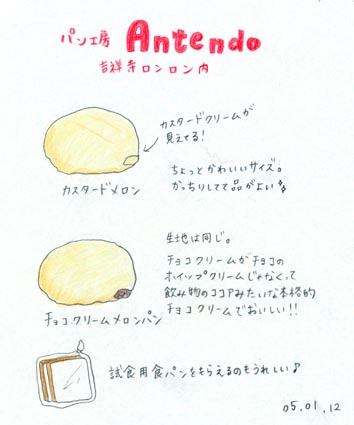 パン工房 Antendo
吉祥寺ロンロン内
カスタードクリームが
見えてる!
ちょっとかわいいサイズ。
がっちりしてて品がよい♪
カスタードメロン
生地は同じ。
チョコクリームがチョコの
ホイップクリームじゃなくって
飲み物のココアみたいな本格的
チョコクリームでおいしい!!
チョコクリームメロンパン
試食用食パンをもらえるのもうれしい♪
05.01.12